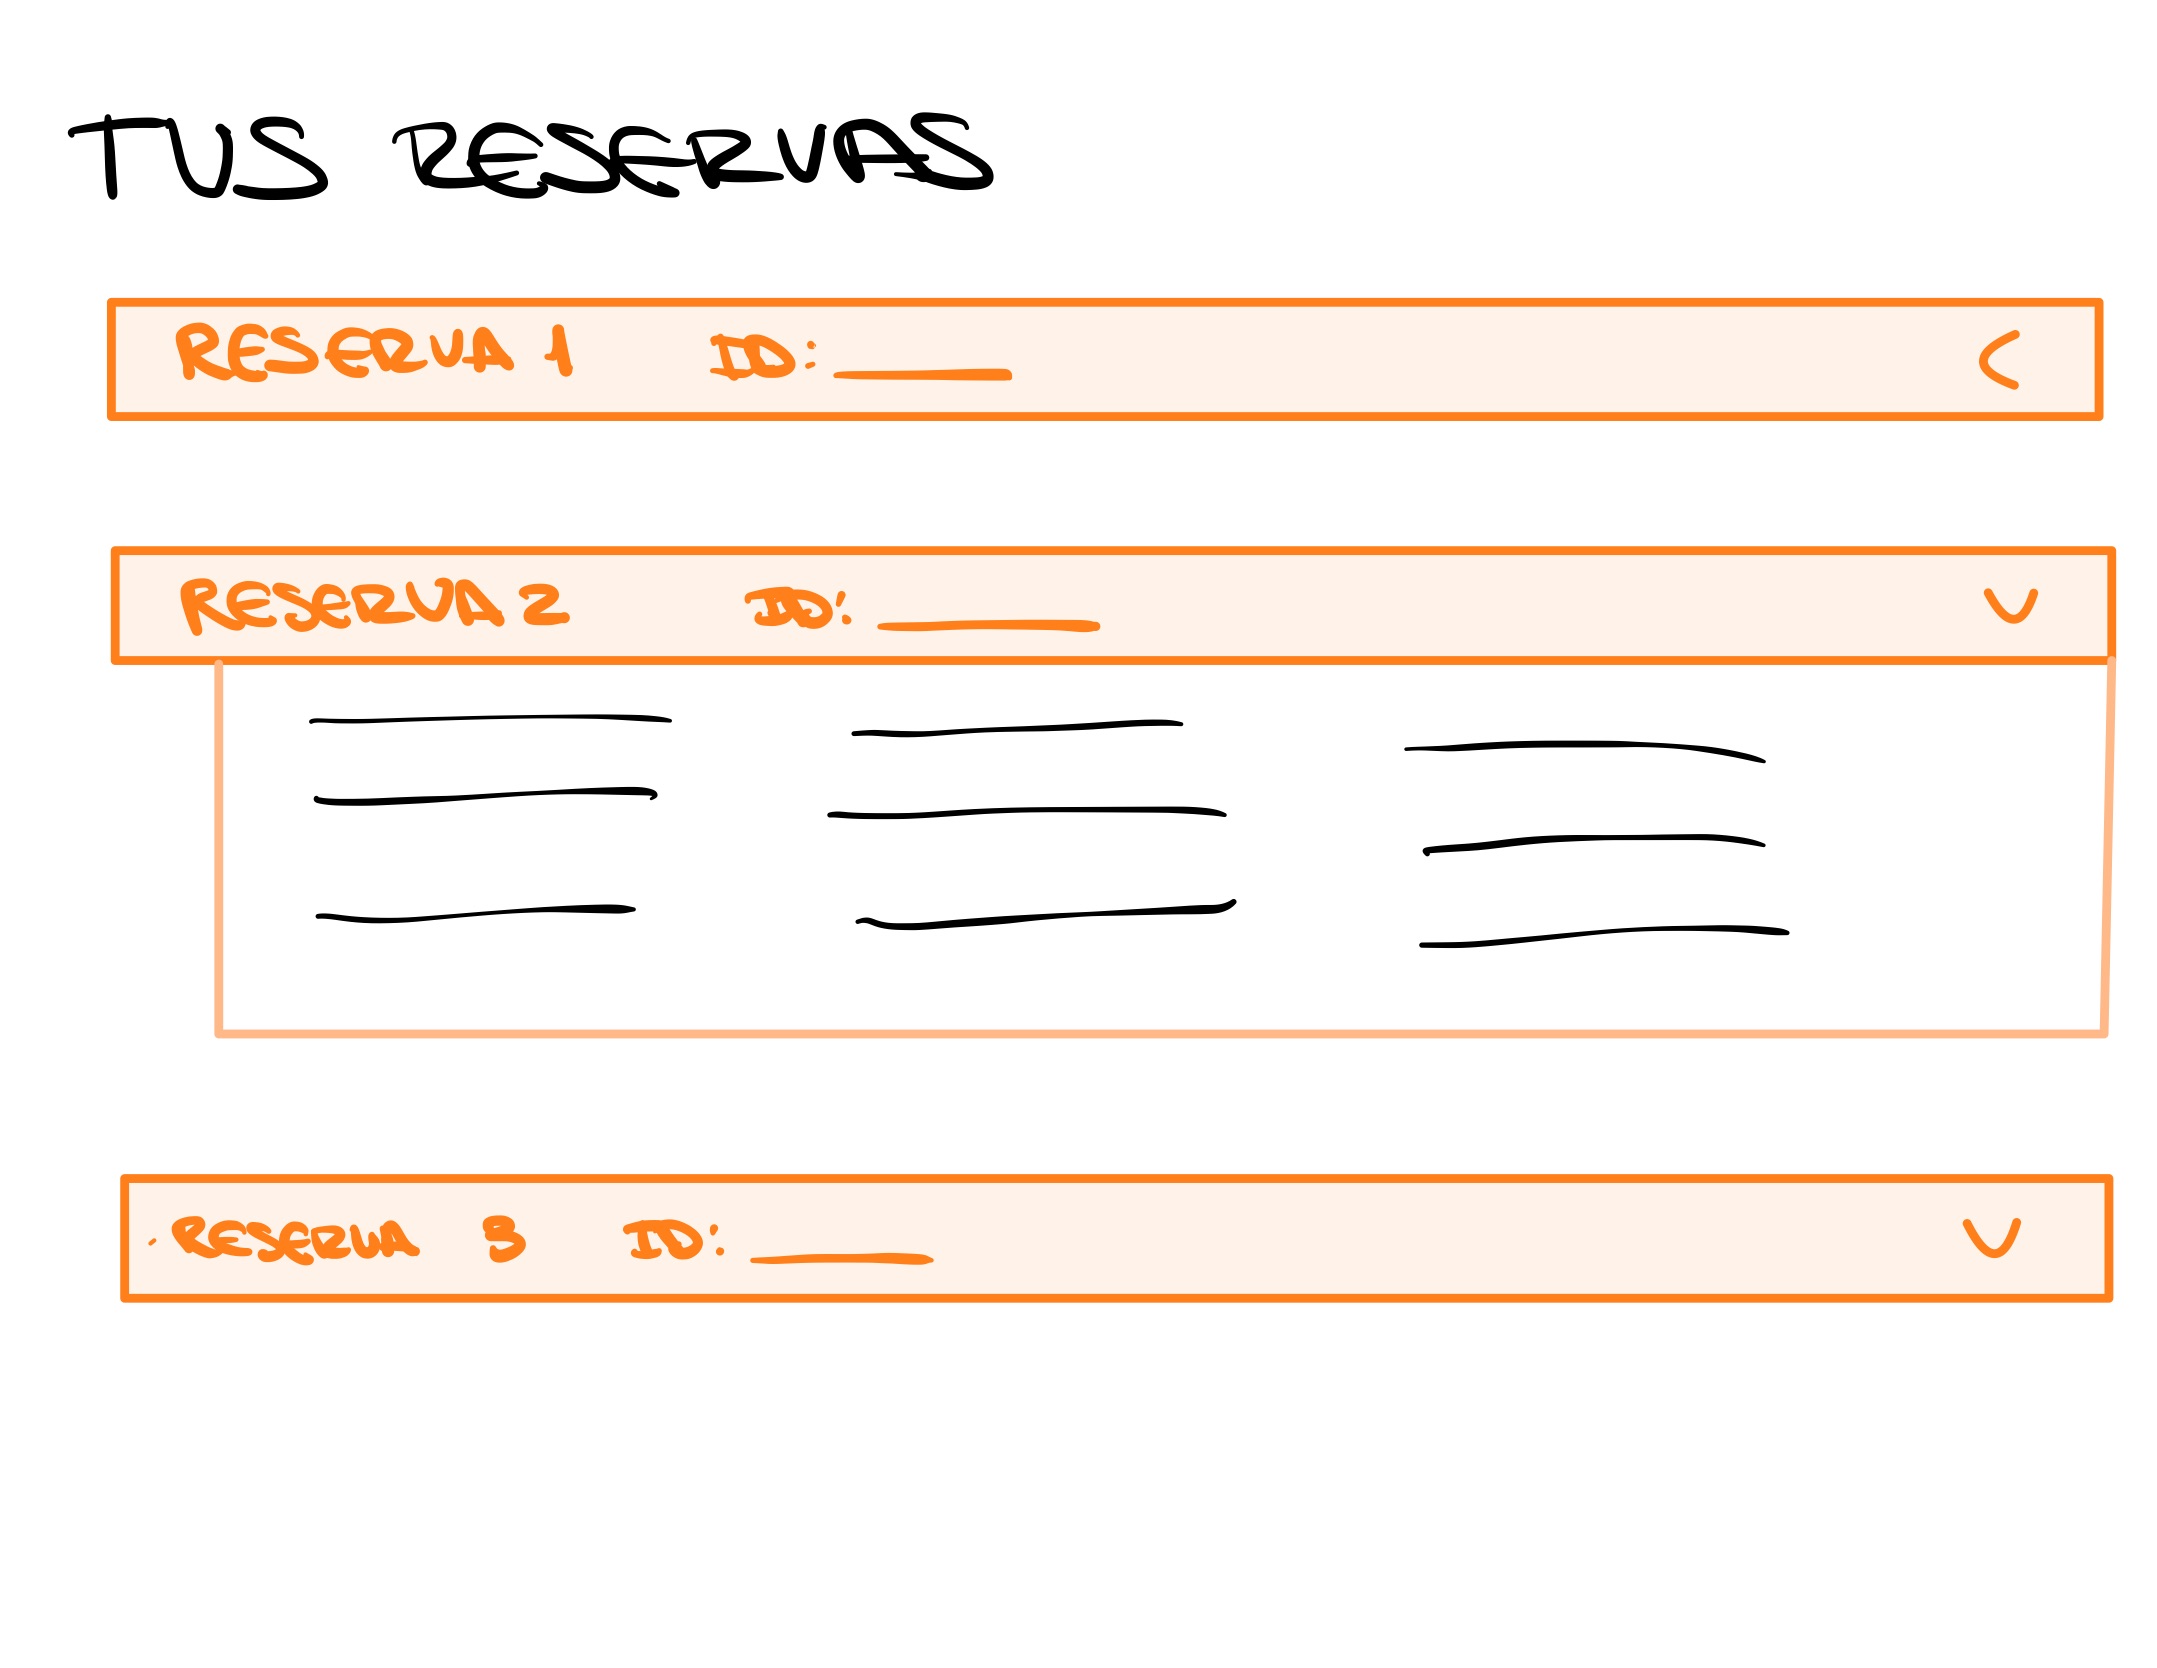 TUS RESERVAS
RESERVA 1 ID:
RESERVA 2 ID:
RESERVA 3 ID: